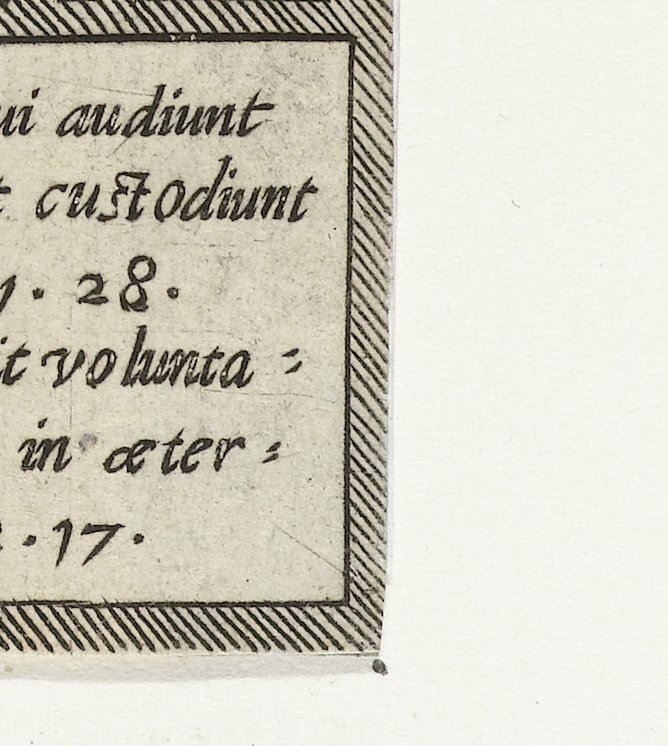 ui audiunt
t custodiunt
. 28.
it volunta=
in æter=
. 17.